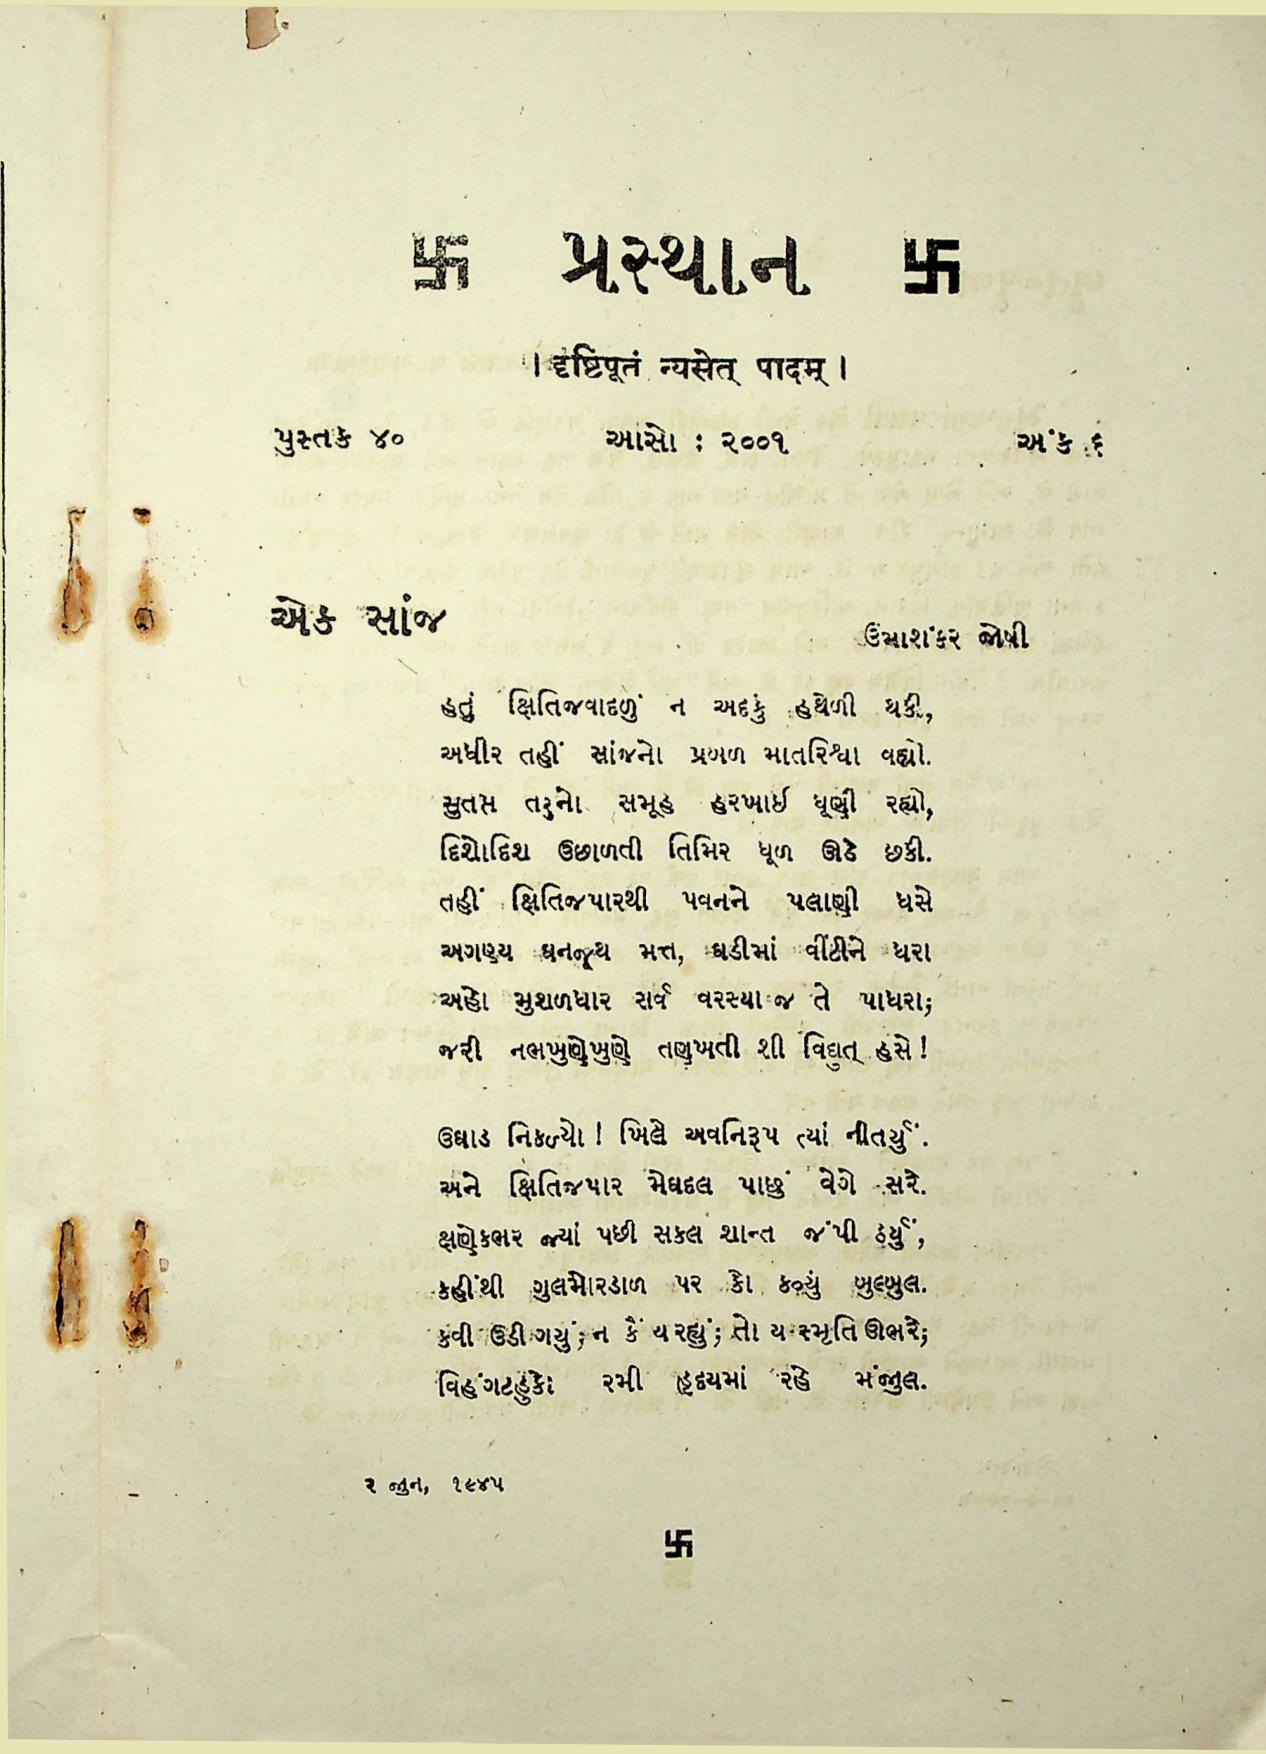 卐 પ્રસ્થાન 卐
। दृष्टिपूतं न्यसेत् पादम् ।
પુસ્તક ૪૦ આસો : ૨૦૦૧ અંક ૬
એક સાંજ
ઉમાશંકર જોષી
હતું ક્ષિતિજવાદળું ન અદકું હથેળી થકી,
અધીર તહીં સાંજનો પ્રબળ માતરિશ્વા વહ્યો.
સુતપ્ત તરુનો સમૂહ હરખાઈ ધૂણી રહ્યો,
દિશોદિશ ઉછાળતી તિમિર ધૂળ ઊઠે છકી.
તહીં ક્ષિતિજપારથી પવનને પલાણી ધસે
અગણ્ય ઘનજૂથ મત્ત, ઘડીમાં વીંટીને ધરા
અહો મુશળધાર સર્વ વરસ્યા જ તે પાધરા;
જરી નભખુણેખુણે તણખતી શી વિદ્યુત્ હસે!
ઉઘાડ નિકળ્યો! ખિલે અવનિરૂપ ત્યાં નીતર્યું.
અને ક્ષિતિજપાર મેઘદલ પાછું વેગે સરે.
ક્ષણેકભર જ્યાં પછી સકલ શાન્ત જંપી ઠર્યું,
કહીંથી ગુલમોરડાળ પર કો કળ્યું બુલ્બુલ.
કવી ઉડી ગયું; ન કૈં ય રહ્યું; તો ય સ્મૃતિ ઊભરે;
વિહંગટહુકો રમી હૃદયમાં રહે મંજુલ.
૨ જુન, ૧૯૪૫
卐